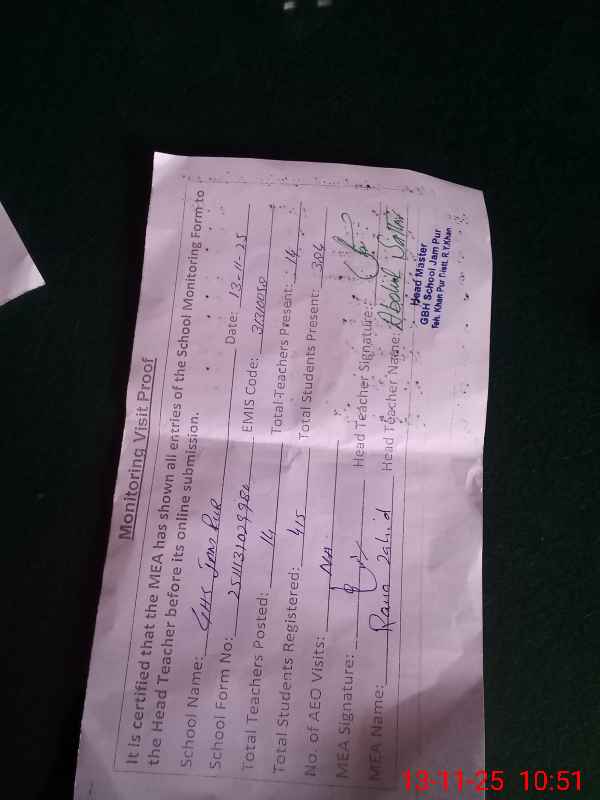 Monitoring Visit Proof
It is certified that the MEA has shown all entries of the School Monitoring Form to
the Head Teacher before its online submission.
School Name: GHS Jam Pur
School Form No: Date: 13-11-25
Total Teachers Posted: 14 EMIS Code:
Total Students Registered: 415 Total Teachers Present: 14
No. of AEO Visits: NA. Total Students Present: 304
MEA Signature: Head Teacher Signature:
MEA Name: Rana Zahid Head Teacher Name: Abdul Sattar
Head Master
GBH School Jam Pur
Teh. Khan Pur Distt. R.Y.Khan
13-11-25 10:51